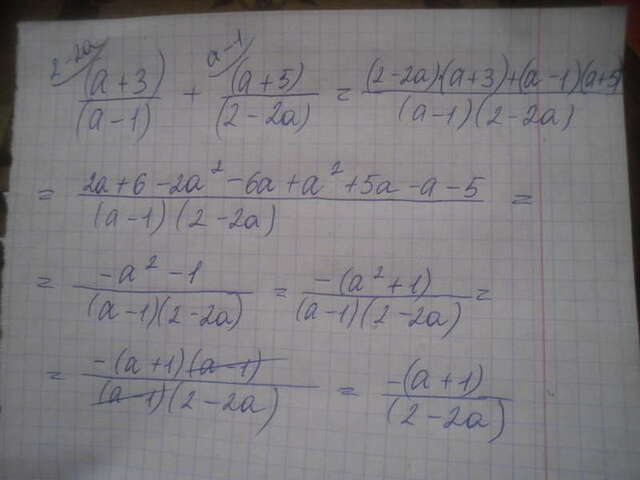 2-2a a-1
(a+3)/(a-1) + (a+5)/(2-2a) = ((2-2a)·(a+3)+(a-1)(a+5))/((a-1)(2-2a))
= (2a+6-2a²-6a+a²+5a-a-5)/((a-1)(2-2a)) =
= (-a²-1)/((a-1)(2-2a)) = (-(a²+1))/((a-1)(2-2a)) =
= (-(a+1)(a-1))/((a-1)(2-2a)) = (-(a+1))/((2-2a))